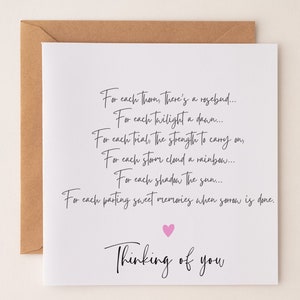 For each thorn, there's a rosebud...
For each twilight a dawn...
For each trial, the strength to carry on,
For each storm cloud a rainbow...
For each shadow the sun...
For each parting sweet memories when sorrow is done.
Thinking of you